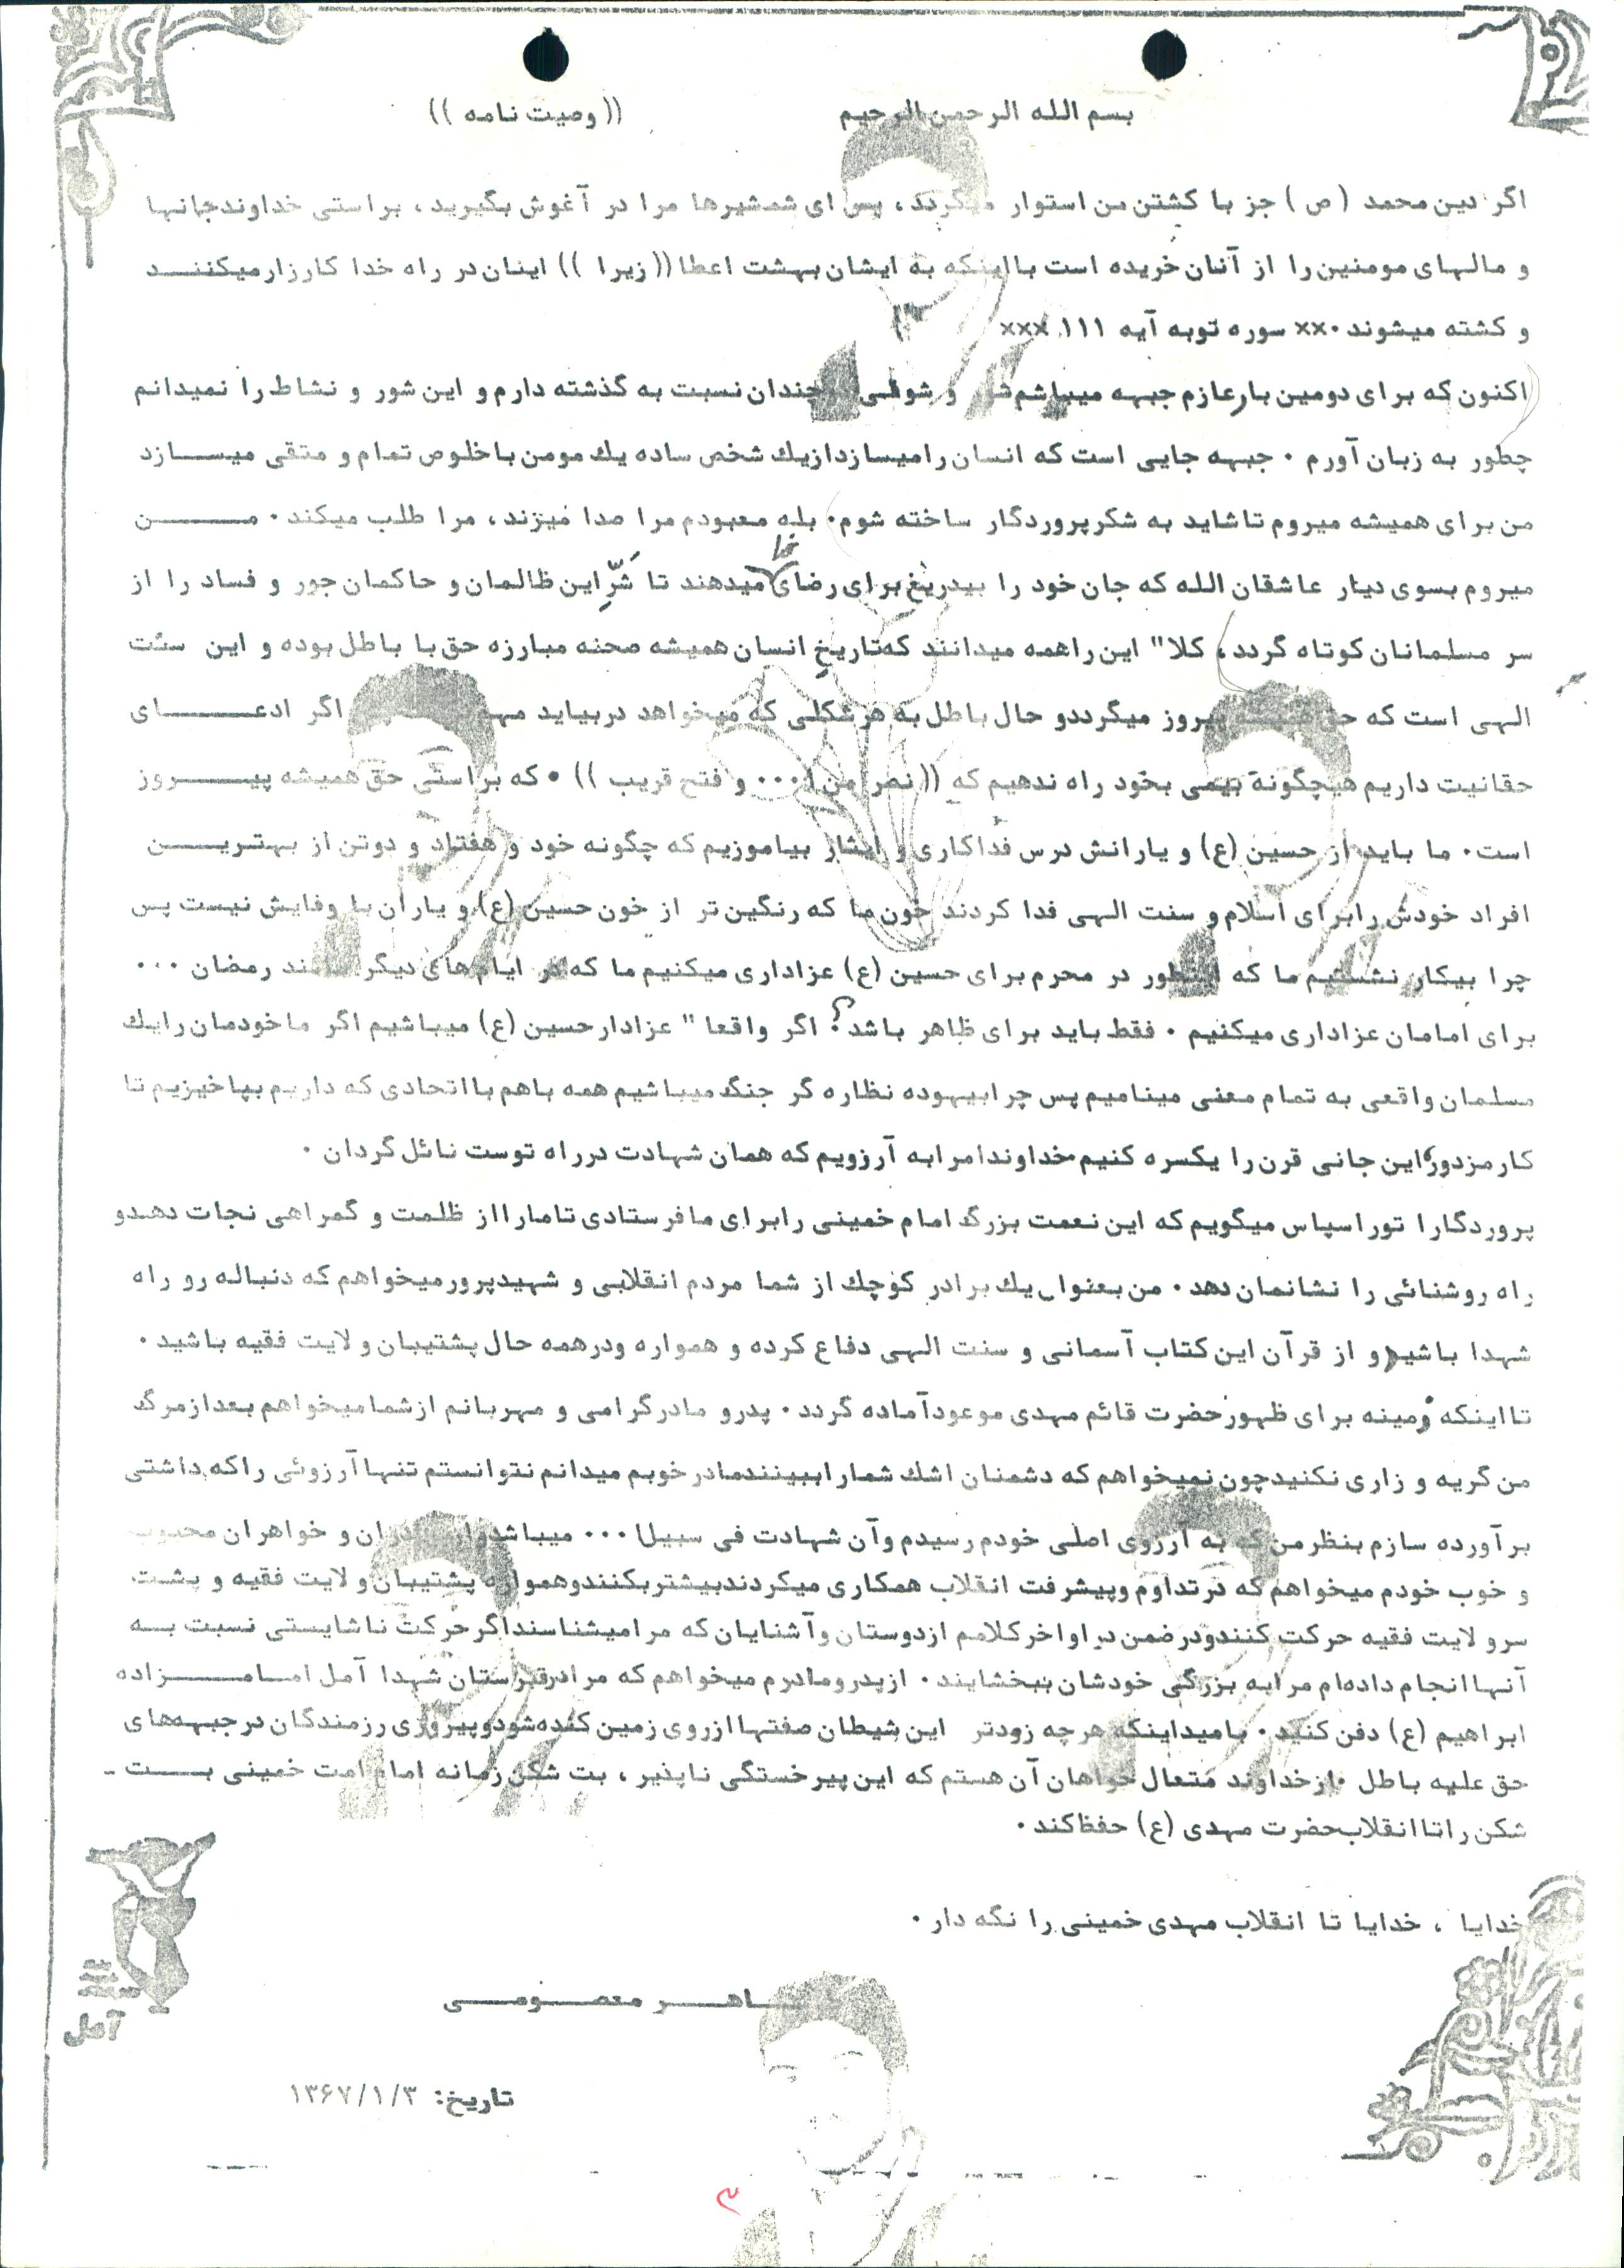 بسم الله الرحمن الرحیم (( وصیت نامه ))
اگر دین محمد (ص) جز با کشتن من استوار نمیگردد، پس ای شمشیرها مرا در آغوش بگیرید، براستی خداوند جانها
و مالهای مومنین را از آنان خریده است با اینکه به ایشان بهشت اعطا (( زیرا )) اینان در راه خدا کارزار میکنند
و کشته میشوند ۰ xx سوره توبه آیه ۱۱۱ xxx
اکنون که برای دومین بار عازم جبهه میباشم شور و شوقی چندان نسبت به گذشته دارم و این شور و نشاط را نمیدانم
چطور به زبان آورم ۰ جبهه جایی است که انسان را میسازد از یك شخص ساده یك مومن با خلوص تمام و متقی میسازد
من برای همیشه میروم تا شاید به شکر پروردگار ساخته شوم۰ بله معبودم مرا صدا میزند، مرا طلب میکند۰ من
میروم بسوی دیار عاشقان الله که جان خود را بیدریغ برای رضای خدا میدهند تا شَرّ این ظالمان و حاکمان جور و فساد را از
سر مسلمانان کوتاه گردد، کلا" این را همه میدانند که تاریخ انسان همیشه صحنه مبارزه حق با باطل بوده و این سنت
الهی است که حق همیشه پیروز میگردد و حال باطل به هر شکلی که میخواهد در بیاید اگر ادعای
حقانیت داریم هیچگونه بیمی بخود راه ندهیم که (( نصر من ا۰۰۰ و فتح قریب )) ۰ که براستی حق همیشه پیروز
است۰ ما باید از حسین (ع) و یارانش درس فداکاری و ایثار بیاموزیم که چگونه خود و هفتاد و دوتن از بهترین
افراد خودش را برای اسلام و سنت الهی فدا کردند خون ما که رنگین تر از خون حسین (ع) و یاران با وفایش نیست پس
چرا بیکار نشستیم ما که اینطور در محرم برای حسین (ع) عزاداری میکنیم ما که در ایام های دیگر مانند رمضان ۰۰۰
برای امامان عزاداری میکنیم ۰ فقط باید برای ظاهر باشد؟ اگر واقعا" عزادار حسین (ع) میباشیم اگر ما خودمان را یك
مسلمان واقعی به تمام معنی مینامیم پس چرا بیهوده نظاره گر جنگ میباشیم همه باهم با اتحادی که داریم بپا خیزیم تا
کار مزدور این جانی قرن را یکسره کنیم خداوندا مرا به آرزویم که همان شهادت در راه توست نائل گردان ۰
پروردگارا تو را سپاس میگویم که این نعمت بزرگ امام خمینی را برای ما فرستادی تا ما را از ظلمت و گمراهی نجات دهد و
راه روشنائی را نشانمان دهد۰ من بعنوان یك برادر کوچك از شما مردم انقلابی و شهید پرور میخواهم که دنباله رو راه
شهدا باشید و از قرآن این کتاب آسمانی و سنت الهی دفاع کرده و همواره و در همه حال پشتیبان ولایت فقیه باشید ۰
تا اینکه زمینه برای ظهور حضرت قائم مهدی موعود آماده گردد۰ پدر و مادر گرامی و مهربانم از شما میخواهم بعد از مرگ
من گریه و زاری نکنید چون نمیخواهم که دشمنان اشك شما را ببینند مادر خوبم میدانم نتوانستم تنها آرزوئی را که داشتی
برآورده سازم بنظر من که به آرزوی اصلی خودم رسیدم و آن شهادت فی سبیل ا۰۰۰ میباشد و از برادران و خواهران محبوب
و خوب خودم میخواهم که در تداوم و پیشرفت انقلاب همکاری میکردند بیشتر بکنند و همواره پشتیبان ولایت فقیه و پشت
سر ولایت فقیه حرکت کنند و در ضمن در اواخر کلامم از دوستان و آشنایان که مرا میشناسند اگر حرکت ناشایستی نسبت به
آنها انجام داده ام مرا به بزرگی خودشان ببخشایند۰ از پدر و مادرم میخواهم که مرا در قبرستان شهدا آمل امامزاده
ابراهیم (ع) دفن کنید۰ بامید اینکه هر چه زودتر این شیطان صفتها از روی زمین کنده شود و پیروزی رزمندگان در جبهه های
حق علیه باطل ۰ از خداوند متعال خواهان آن هستم که این پیر خستگی ناپذیر، بت شکن زمانه امام امت خمینی بت -
شکن را تا انقلاب حضرت مهدی (ع) حفظ کند۰
خدایا ، خدایا تا انقلاب مهدی خمینی را نگه دار۰
معصومی
تاریخ: ۱۳۶۷/۱/۳
آمل
۳